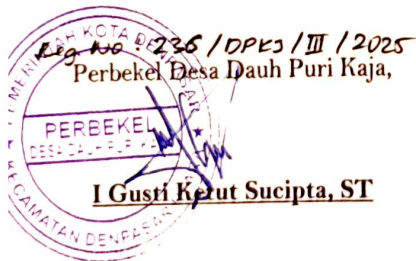 Reg No : 236/DPKJ/III/2025
Perbekel Desa Dauh Puri Kaja,
PEMERINTAH KOTA DENPASAR
PERBEKEL
DESA DAUH PURI KAJA
KECAMATAN DENPASAR
I Gusti Ketut Sucipta, ST